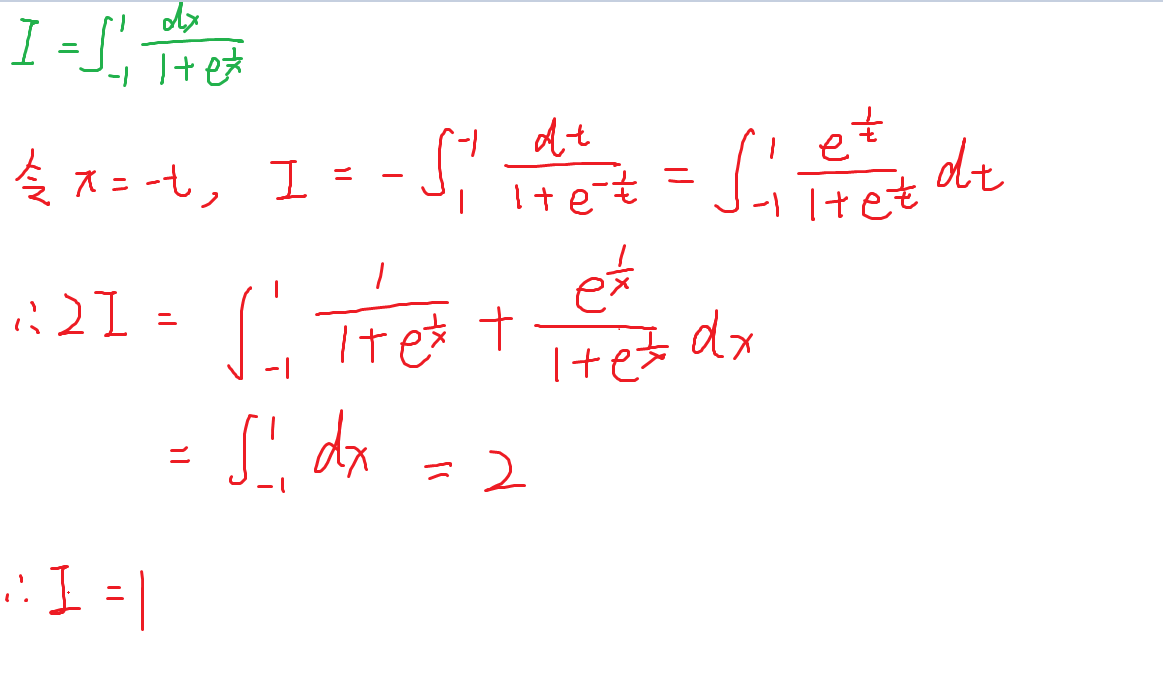 I = ∫_{-1}^{1} \frac{dx}{1+e^{\frac{1}{x}}}
令 x = -t, I = -∫_{1}^{-1} \frac{dt}{1+e^{-\frac{1}{t}}} = ∫_{-1}^{1} \frac{e^{\frac{1}{t}}}{1+e^{\frac{1}{t}}} dt
∴ 2I = ∫_{-1}^{1} \frac{1}{1+e^{\frac{1}{x}}} + \frac{e^{\frac{1}{x}}}{1+e^{\frac{1}{x}}} dx
= ∫_{-1}^{1} dx = 2
∴ I = 1